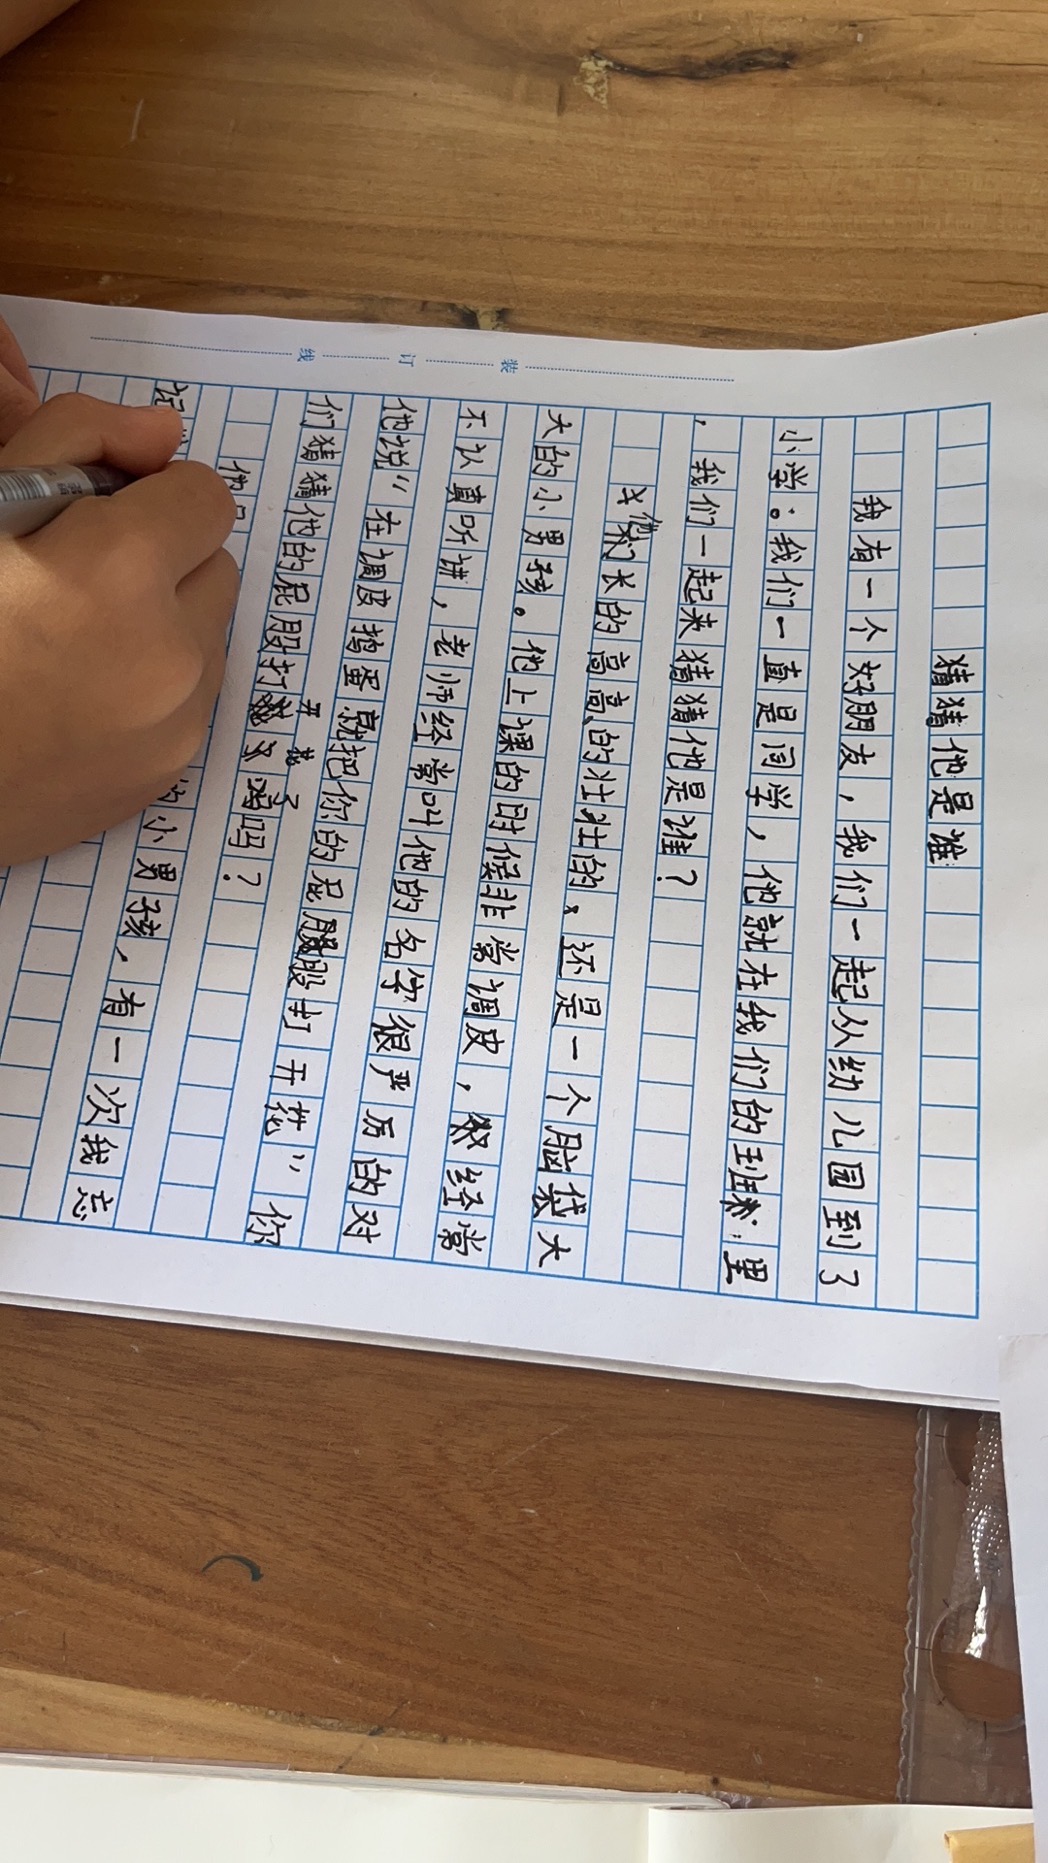 猜猜他是谁
我有一个好朋友，我们一起从幼儿园到了
小学。我们一直是同学，他就在我们的班里
，我们一起来猜猜他是谁？
他长的高高的壮壮的，还是一个脑袋大
大的小男孩。他上课的时候非常调皮，经常
不认真听讲，老师经常叫他的名字很严厉的对
他说“在调皮捣蛋就把你的屁股打开花”你
们猜猜他的屁股打开花了吗？
他
的小男孩，有一次我忘
记
装 订 线